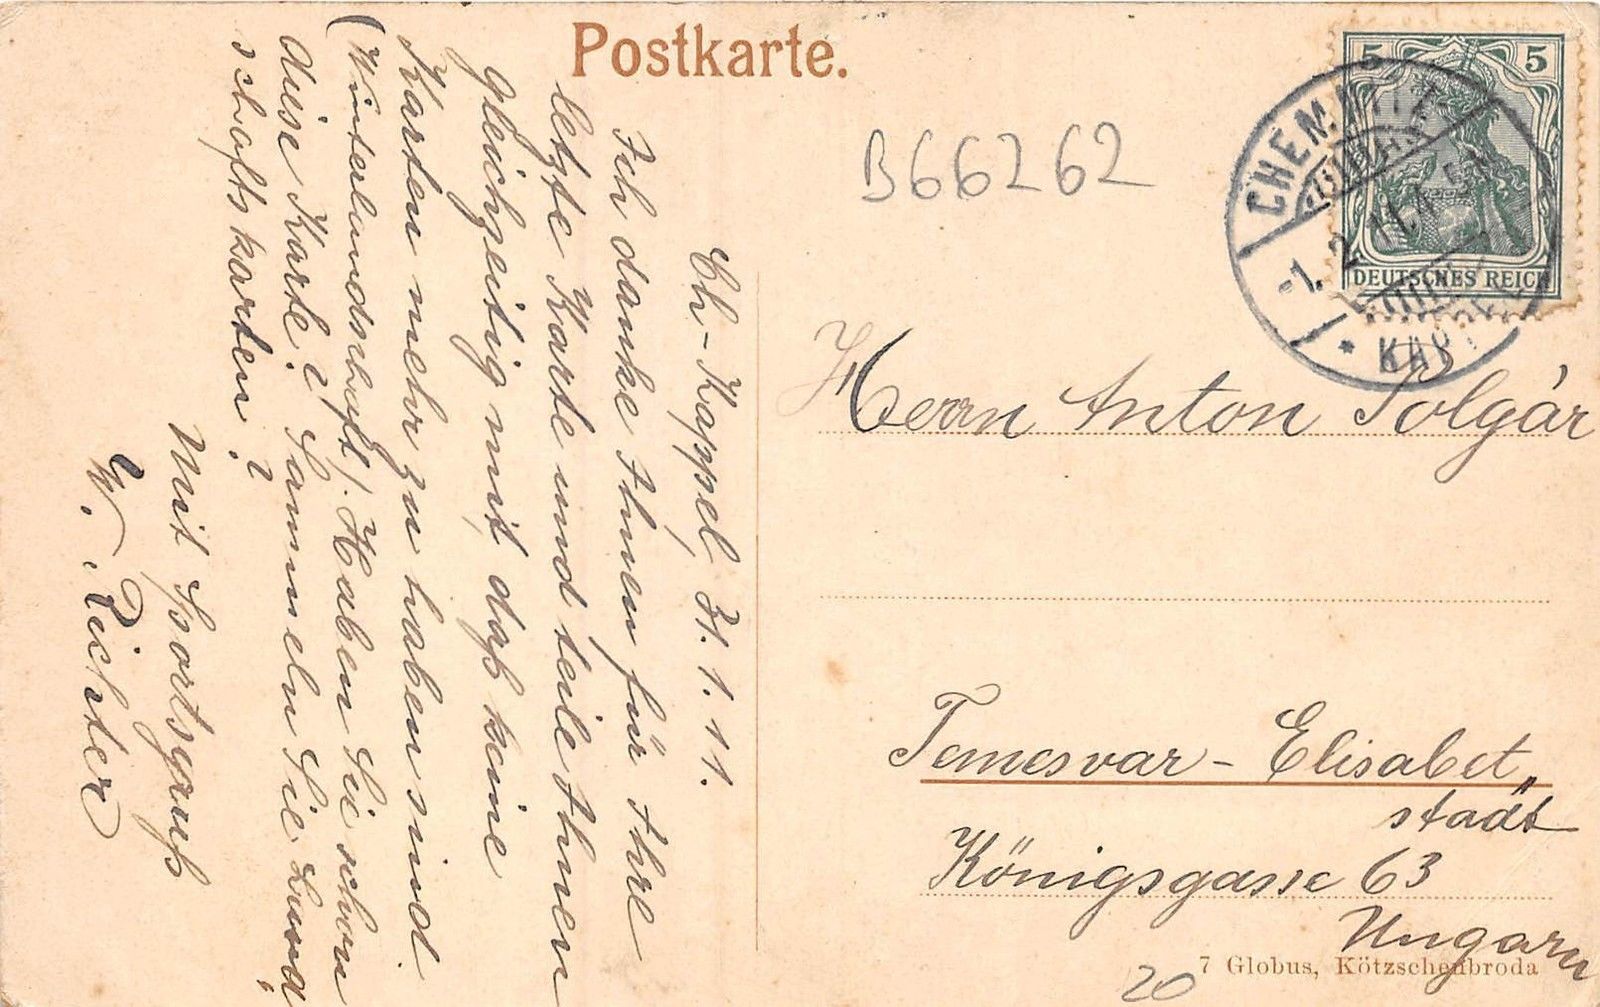 Postkarte.
B66262
5 5
DEUTSCHES REICH
CHEMNITZ
-1. 2. 11.
* KAPPEL
Ch-Kappel, 31. 1. 11.
Ich danke Ihnen für Ihre
letzte Karte und teile Ihnen
gleichzeitig mit, daß keine
Karten mehr zu haben sind.
(Winterlandschaft). Haben Sie schon
diese Karte? Sammeln Sie Land,
schaftskarten?
Mit Sportsgruß
W. Richter
Herrn Anton Polgár
Temesvar-Elisabet„
stadt
Königsgasse 63
Ungarn
7 Globus, Kötzschenbroda
20